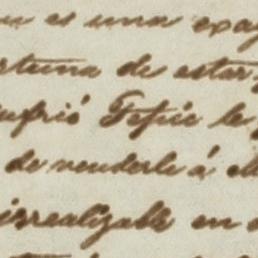 es una exag
rtuna de estar
sufrió Tepic le
de venderle á
irrealizable en